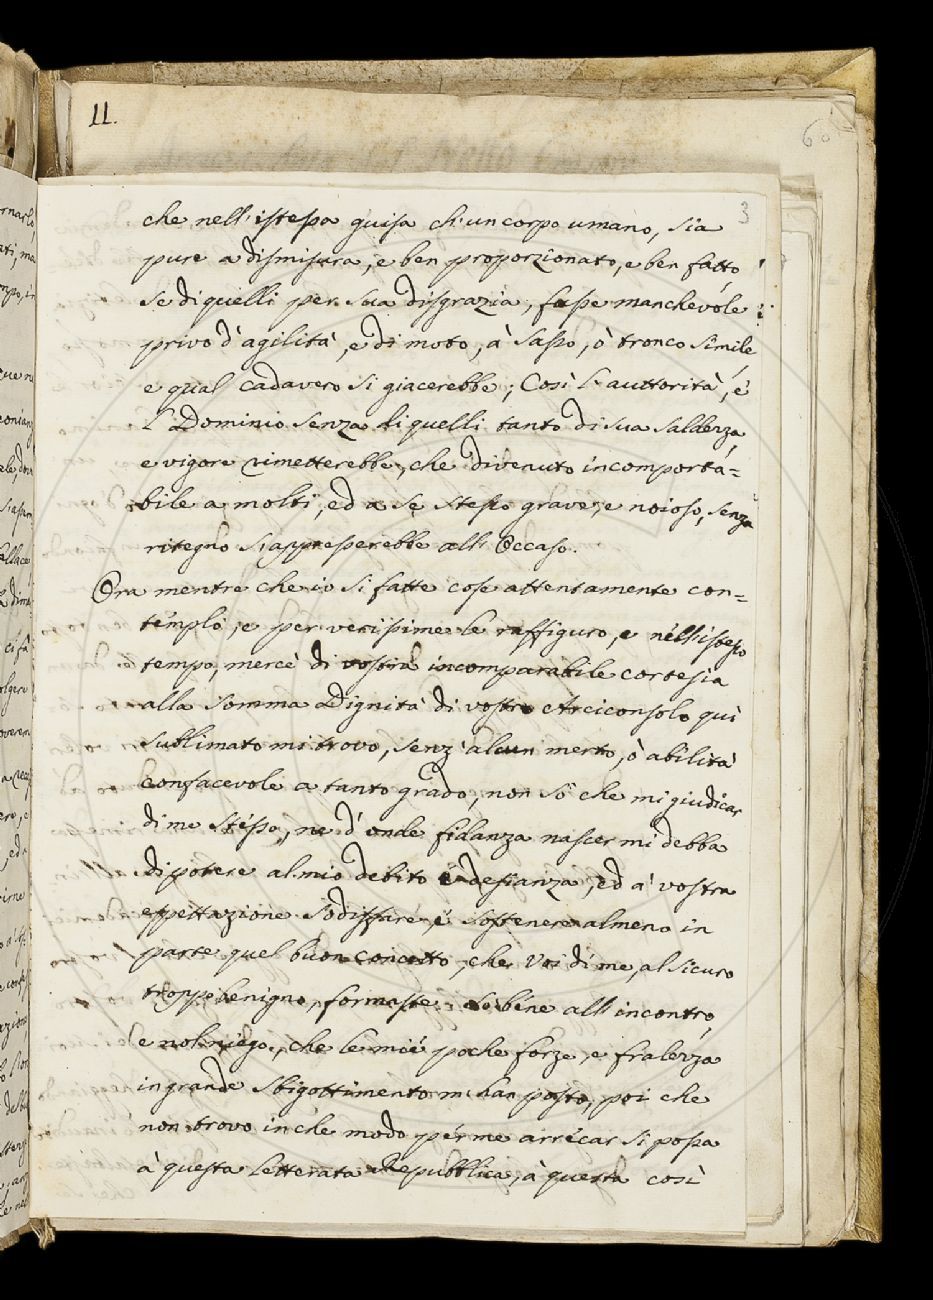 11.
60
3
che nell'istessa guisa ch'un corpo umano, sia
pure a dismisura, e ben proporzionato, e ben fatto
se di quelli per sua disgrazia, fusse manchevole
privo d'agilità, e di moto, à sasso, ò tronco simile
e qual cadavero si giacerebbe; Così l'auttorità, é
l'Dominio senza di quelli tanto di sua saldezza,
e vigore rimetterebbe, che divenuto incomporta=
bile a molti, ed a se stesso grave, e noioso, senza
ritegno s'appresserebbe all'Occaso.
Ora mentre che io si fatte cose attentamente con=
témplo, e per verissime le raffiguro, e nell'istesso
tempo, mercè di vostra incomparabile cortesia
alla somma Dignità di vostro Arciconsolo quì
sublimato mi trovo, senz'alcun merto, ò abilità
confacevole a tanto grado, non sò che mi giudicar
di me stésso, ne d'onde fidanza nascer mi debba
di potere al mio debito é desianza, ed a' vostra
espettazione sodisfare, é sostenere almeno in
parte quel buon concetto, che voi di me, al sicuro
troppo benigno, formaste. Sobéne all'incontro,
e nol niego, che le mié poche forze, e fralezza
in grande sbigottimento m'han posto, poi che
non trovo in che modo pér me arrécar si possa
à questa letterata Repubblica, à questa così